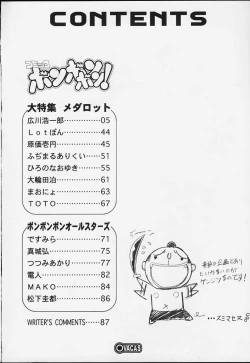 CONTENTS
コミック
ボンボボン!
大特集 メダロット
広川浩一郎……05
Lotぽん……44
原価壱円……45
ふぢまるありくい……51
ひろのなおゆき……55
大輪田泊……61
まおにょ……63
TOTO……67
ボンボンボンオールスターズ
ですみら……71
真城弘……75
つつみあかり……77
竜人……82
MAKO……84
松下圭都……86
WRITER'S COMMENTS……87
…スミマセン
VACAS